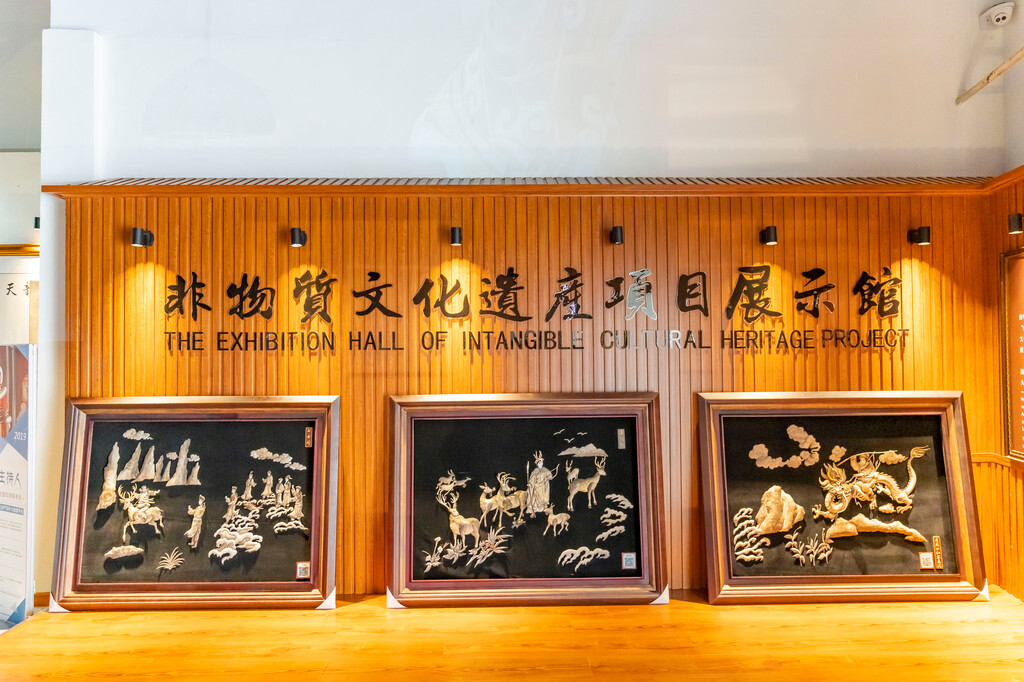 非物質文化遺產項目展示館
THE EXHIBITION HALL OF INTANGIBLE CULTURAL HERITAGE PROJECT
天音
2019
主持人